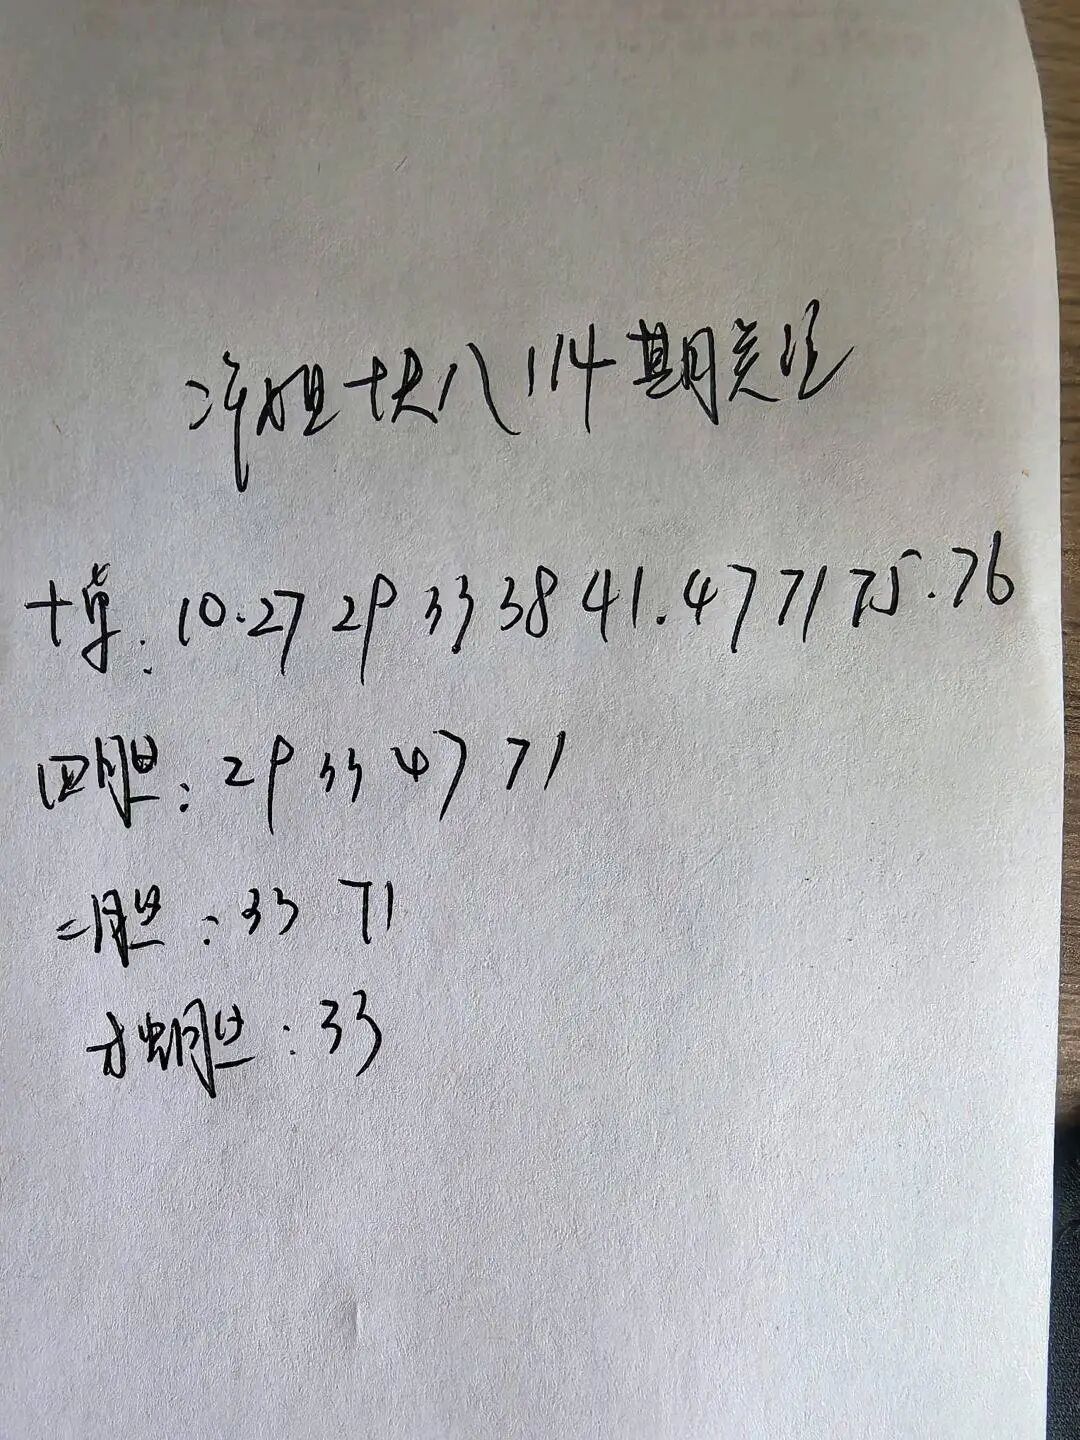 准胆快八114期关注
十单:10.27 29 33 38 41.47 71 75.76
四胆:29 33 47 71
二胆:33 71
独胆:33